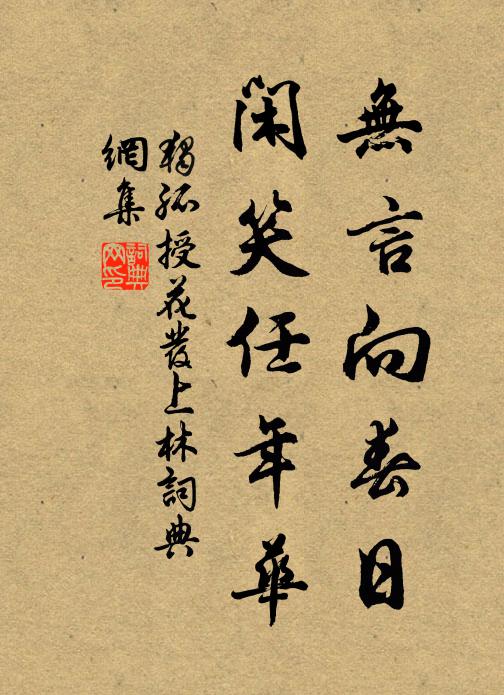 無言向春日
閑笑任年華
獨孤授花發上林詞典
網集
詞典
网印